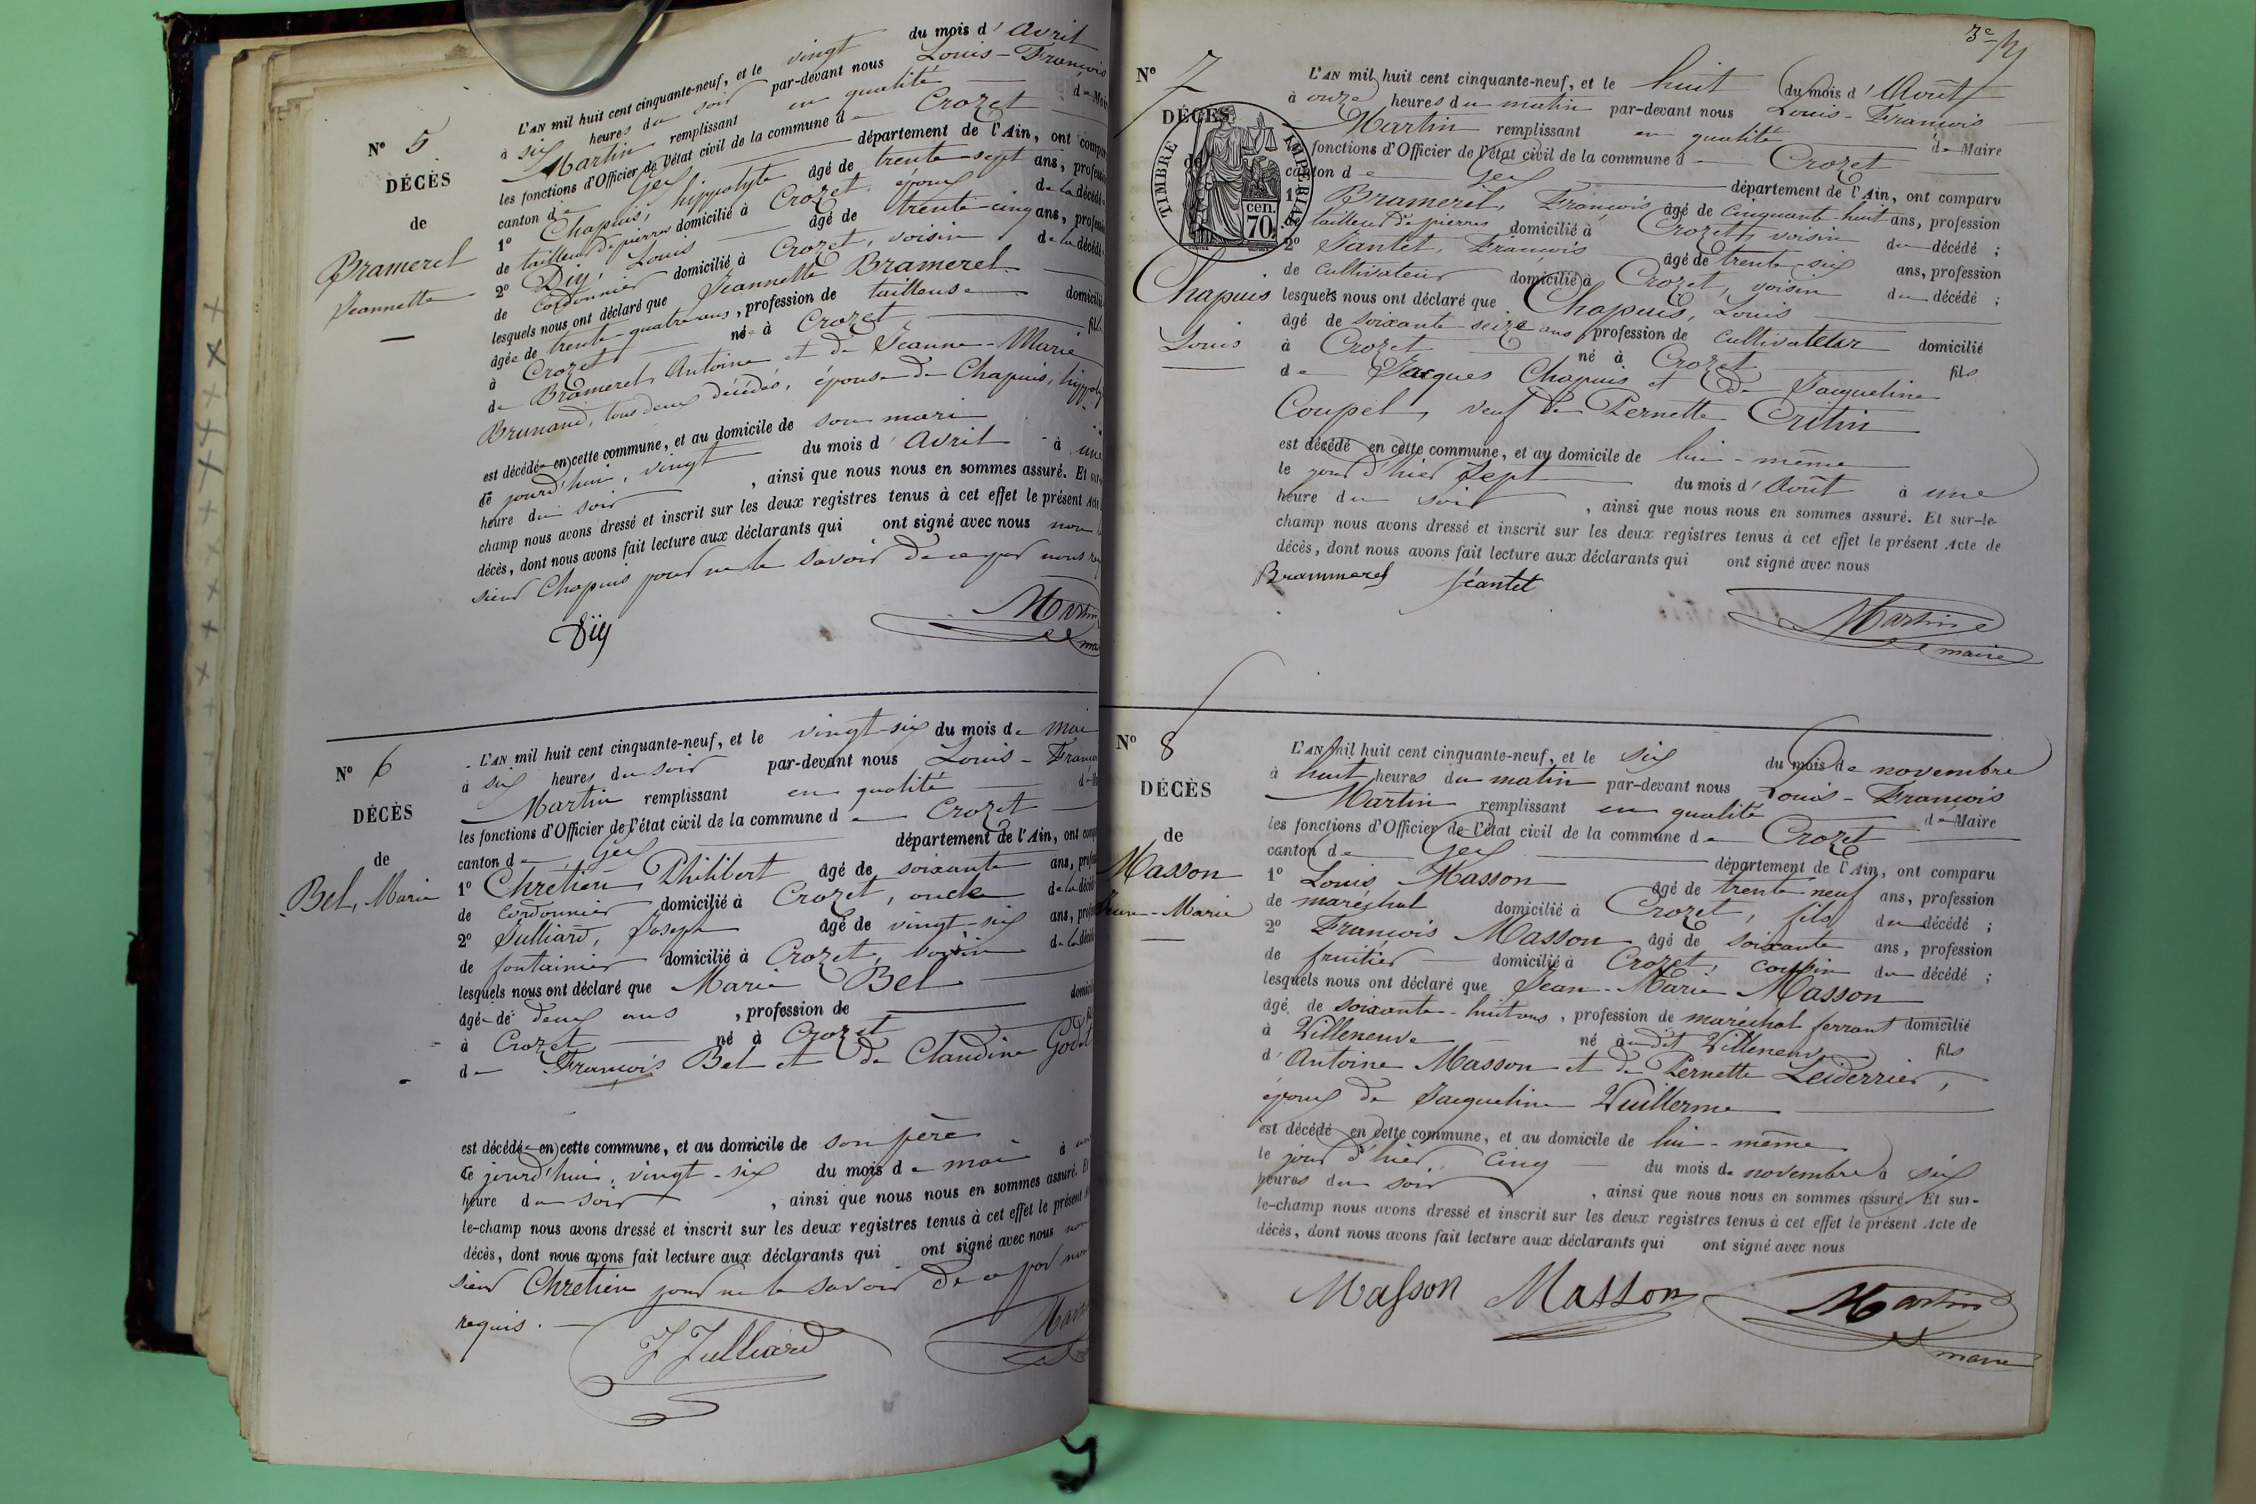 N° 5
DÉCÈS
de
Bramerel
Jeannette
L'AN mil huit cent cinquante-neuf, et le vingt du mois d'Avril
à six heures du soir par-devant nous Louis-François
Martin remplissant en qualité de
les fonctions d'Officier de l'état civil de la commune de Crozet
canton de Gex département de l'Ain, ont
1° Chapuis, hippolyte âgé de trente-sept ans,
de tailleur de pierres domicilié à Crozet, époux de la décédée
2° Diy, Louis âgé de trente-cinq ans,
de Cordonnier domicilié à Crozet, voisin de la
lesquels nous ont déclaré que Jeannette Bramerel
âgée de trente quatre ans, profession de tailleuse
à Crozet née à Crozet fille
de Bramerel, Antoine et de Jeanne-Marie
Brunand, tous deux décédés, épouse de Chapuis,
est décédée en cette commune, et au domicile de son mari
ce jourd'hui, vingt du mois d'Avril à une
heure du soir , ainsi que nous nous en sommes assuré. Et
champ nous avons dressé et inscrit sur les deux registres tenus à cet effet le présent Acte
décès, dont nous avons fait lecture aux déclarants qui ont signé avec nous non
sieur Chapuis pour ne le savoir de ce par nous
Diy Martin
N° 6
DÉCÈS
de
Bel, Marie
L'AN mil huit cent cinquante-neuf, et le vingt-six du mois de mai
à six heures du soir par-devant nous Louis-
Martin remplissant en qualité
les fonctions d'Officier de l'état civil de la commune de Crozet
canton de Gex département de l'Ain, ont
1° Chrétien, Philibert âgé de soixante ans,
de cordonnier domicilié à Crozet, oncle de la
2° Julliard, Joseph âgé de vingt-six ans,
de fontainier domicilié à Crozet, voisin de la
lesquels nous ont déclaré que Marie Bel
âgée de deux ans , profession de
à Crozet née à Crozet
de François Bel et de Claudine
est décédée en cette commune, et au domicile de son père
ce jourd'hui, vingt-six du mois de mai à
heure du soir , ainsi que nous nous en sommes assuré.
le-champ nous avons dressé et inscrit sur les deux registres tenus à cet effet le présent
décès, dont nous avons fait lecture aux déclarants qui ont signé avec nous non
sieur Chretien pour ne le savoir de ce par nous
requis.
J Julliard
N° 7
DÉCÈS
de
TIMBRE IMPERIAL
70 cen.
Chapuis
Louis
L'AN mil huit cent cinquante-neuf, et le huit du mois d'Août
à onze heures du matin par-devant nous Louis-François
Martin remplissant en qualité de Maire
fonctions d'Officier de l'état civil de la commune de Crozet
canton de Gex département de l'Ain, ont comparu
1° Bramerel, François âgé de cinquante-huit ans, profession
tailleur de pierres domicilié à Crozet, voisin du décédé ;
2° Santet, François âgé de trente-six ans, profession
de cultivateur domicilié à Crozet, voisin du décédé ;
lesquels nous ont déclaré que Chapuis, Louis
âgé de soixante seize ans, profession de cultivateur domicilié
à Crozet né à Crozet fils
de Jacques Chapuis et de Jacqueline
Coupel, veuf de Pernette Critin
est décédé en cette commune, et au domicile de lui-même
le jour d'hier sept du mois d'Août à une
heure du soir , ainsi que nous nous en sommes assuré. Et sur-le-
champ nous avons dressé et inscrit sur les deux registres tenus à cet effet le présent Acte de
décès, dont nous avons fait lecture aux déclarants qui ont signé avec nous
Brammerel Martin
maire
N° 8
DÉCÈS
de
Masson
Jean-Marie
L'AN mil huit cent cinquante-neuf, et le six du mois de novembre
à huit heures du matin par-devant nous Louis-François
Martin remplissant en qualité de Maire
les fonctions d'Officier de l'état civil de la commune de Crozet
canton de Gex département de l'Ain, ont comparu
1° Louis Masson âgé de trente neuf ans, profession
de maréchal domicilié à Crozet, fils du décédé ;
2° François Masson âgé de soixante ans, profession
de fruitier domicilié à Crozet, cousin du décédé ;
lesquels nous ont déclaré que Jean-Marie Masson
âgé de soixante-huit ans, profession de maréchal ferrant domicilié
à Villeneuve né audit Villeneuve fils
d'Antoine Masson et de Pernette
époux de Jacqueline Vuillerme
est décédé en cette commune, et au domicile de lui-même
le jour d'hier, cinq du mois de novembre à six
heures du soir , ainsi que nous nous en sommes assuré. Et sur-
le-champ nous avons dressé et inscrit sur les deux registres tenus à cet effet le présent Acte de
décès, dont nous avons fait lecture aux déclarants qui ont signé avec nous
Masson Masson Martin
maire